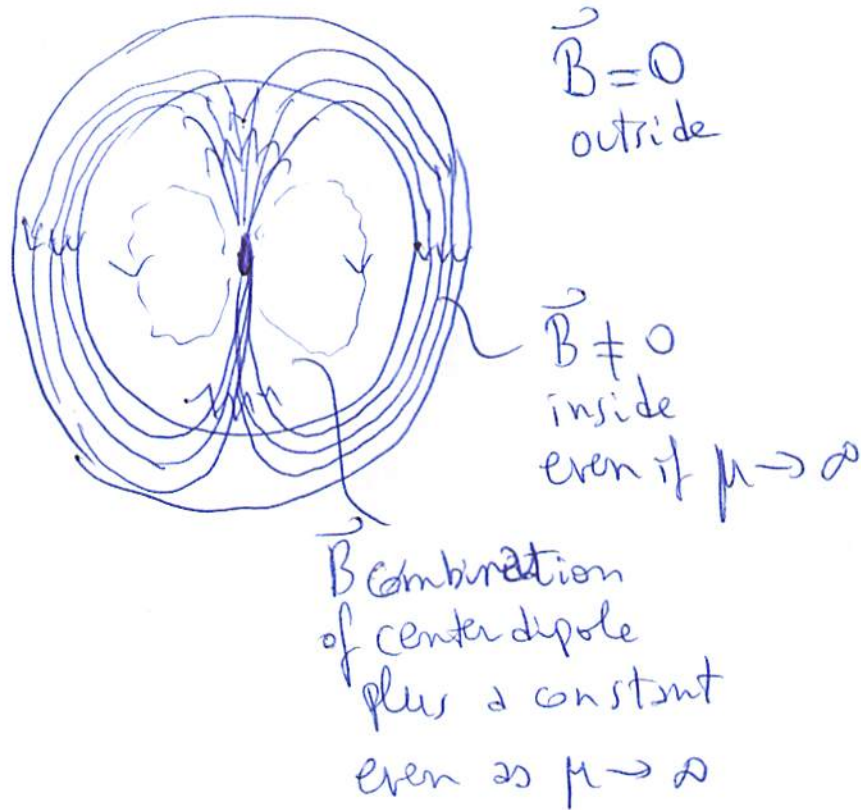 B⃗ = 0
outside
B⃗ ≠ 0
inside
even if μ → ∞
B⃗ combination
of center dipole
plus a constant
even as μ → ∞